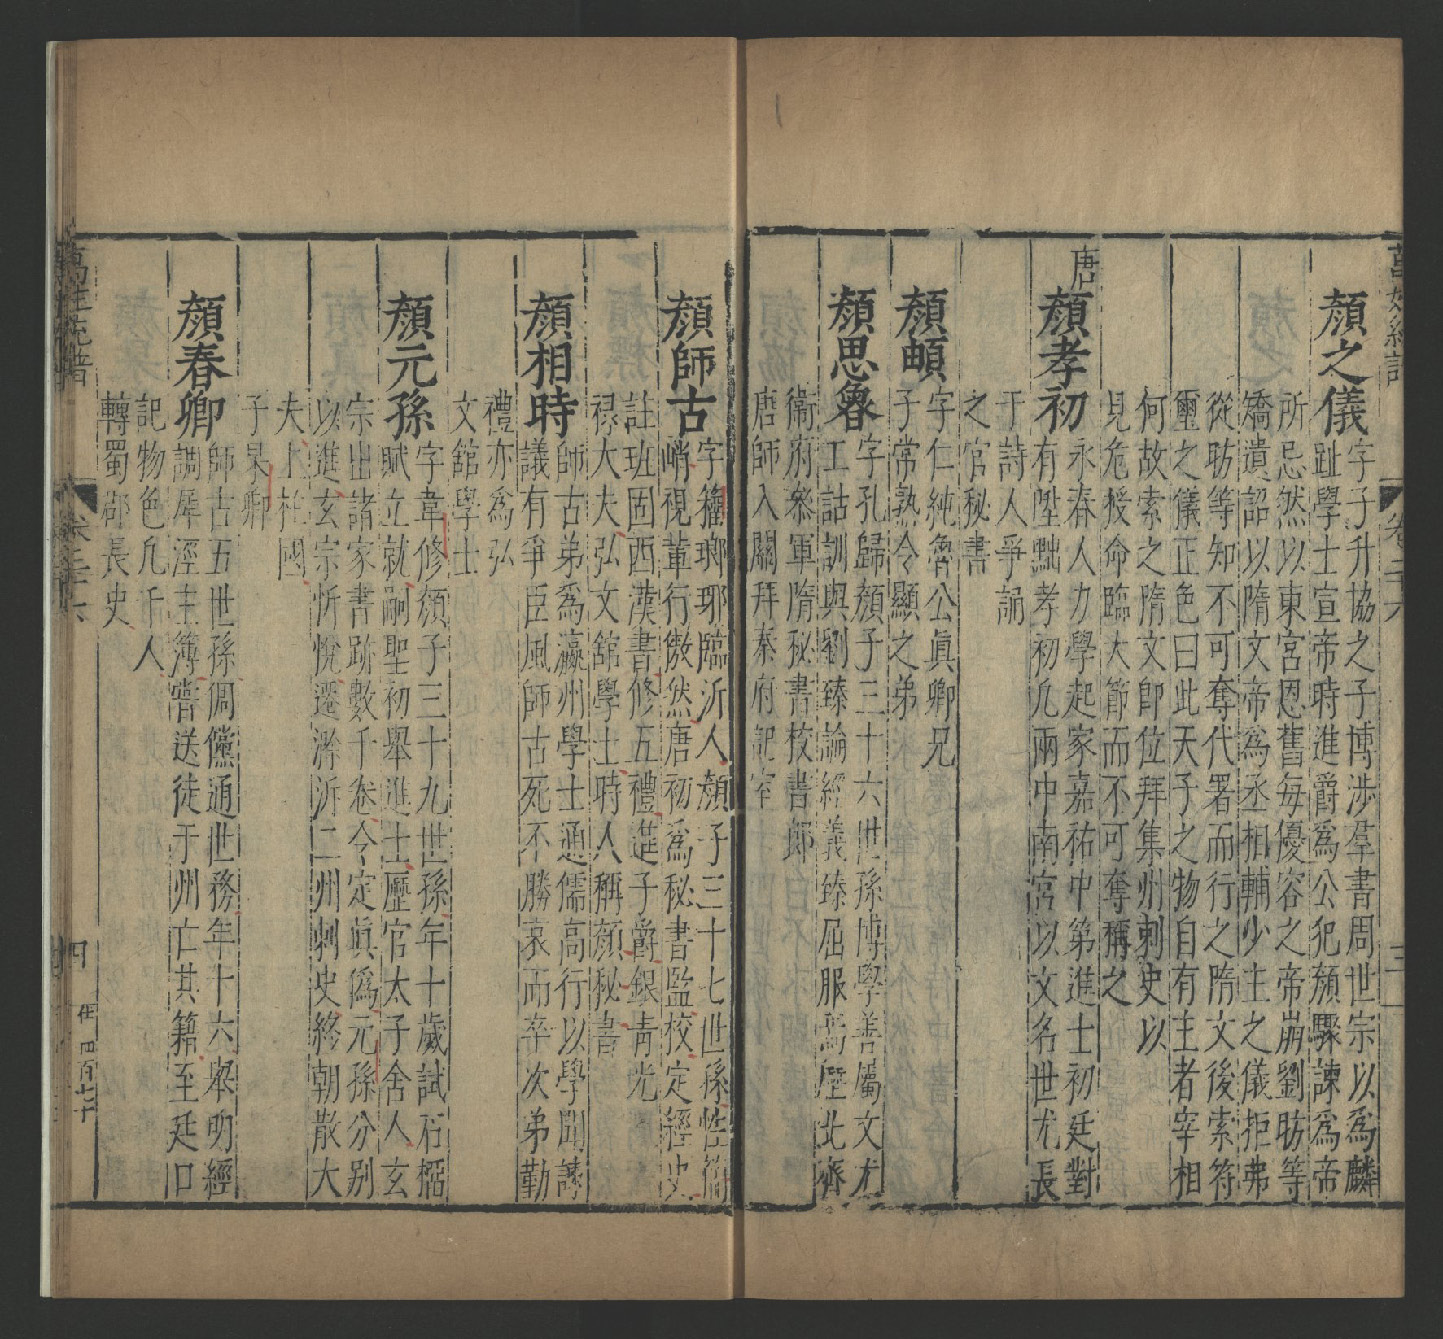 萬姓統譜
卷二十六
三
顏之儀
字子升協之子博涉羣書周世宗以爲麟
趾學士宣帝時進爵爲公犯顏驟諫爲帝
所忌然以東宮恩舊每優容之帝崩劉昉等
矯遺詔以隋文帝爲丞相輔少主之儀拒弗
從昉等知不可奪代署而行之隋文後索符
璽之儀正色曰此天子之物自有主者宰相
何故索之隋文即位拜集州刺史以
見危授命臨大節而不可奪稱之
唐
顏孝初
永春人力學起家嘉祐中第進士初廷對
有陞黜孝初凡兩中南宮以文名世尤長
于詩人爭誦
之官秘書
顏頔
字仁純魯公眞卿兄
子常熟令顯之弟
顏思魯
字孔歸顏子三十六世孫博學善屬文尤
工詁訓與劉臻論經義臻屈服焉歷北齊
衞府叅軍隋秘書校書郎
唐師入關拜秦府記室
顏師古
字籀瑯琊臨沂人顏子三十七世孫性簡
峭視輩行傲然唐初爲秘書監校定經史
註班固西漢書修五禮進子爵銀青光
禄大夫弘文館學士時人稱顏秘書
顏相時
師古弟爲瀛州學士通儒高行以學聞諱
議有爭臣風師古死不勝哀而卒次弟勤
禮亦爲弘
文館學士
顏元孫
字韋修顏子三十九世孫年十歲試石榴
賦立就嗣聖初舉進士歷官太子舍人玄
宗出諸家書跡數千卷令定眞僞元孫分别
以進玄宗忻悅遷滁沂二州刺史終朝散大
夫上柱國
子杲卿
顏春卿
師古五世孫倜儻通世務年十六舉明經
調犀涇主簿嘗送徒于州亡其籍至廷口
記物色凡千人
轉蜀郡長史
萬姓統譜
卷二十六
四
任四百七十